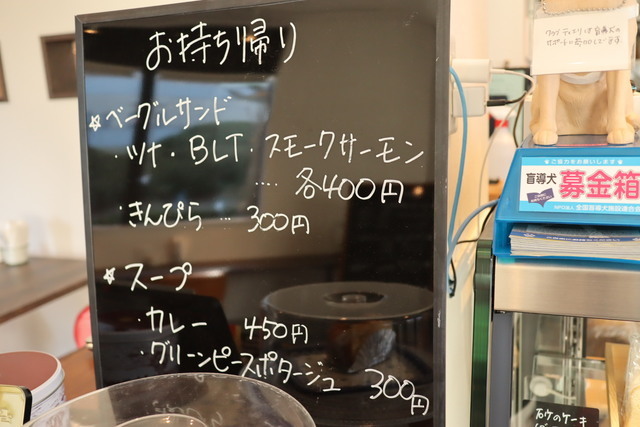 お持ち帰り
☆ベーグルサンド
・ツナ・BLT・スモークサーモン
‥‥各400円
・きんぴら…300円
☆スープ
・カレー 450円
・グリーンピースポタージュ 300円
ご協力をお願いします
盲導犬
募金箱
全国盲導犬施設連合会